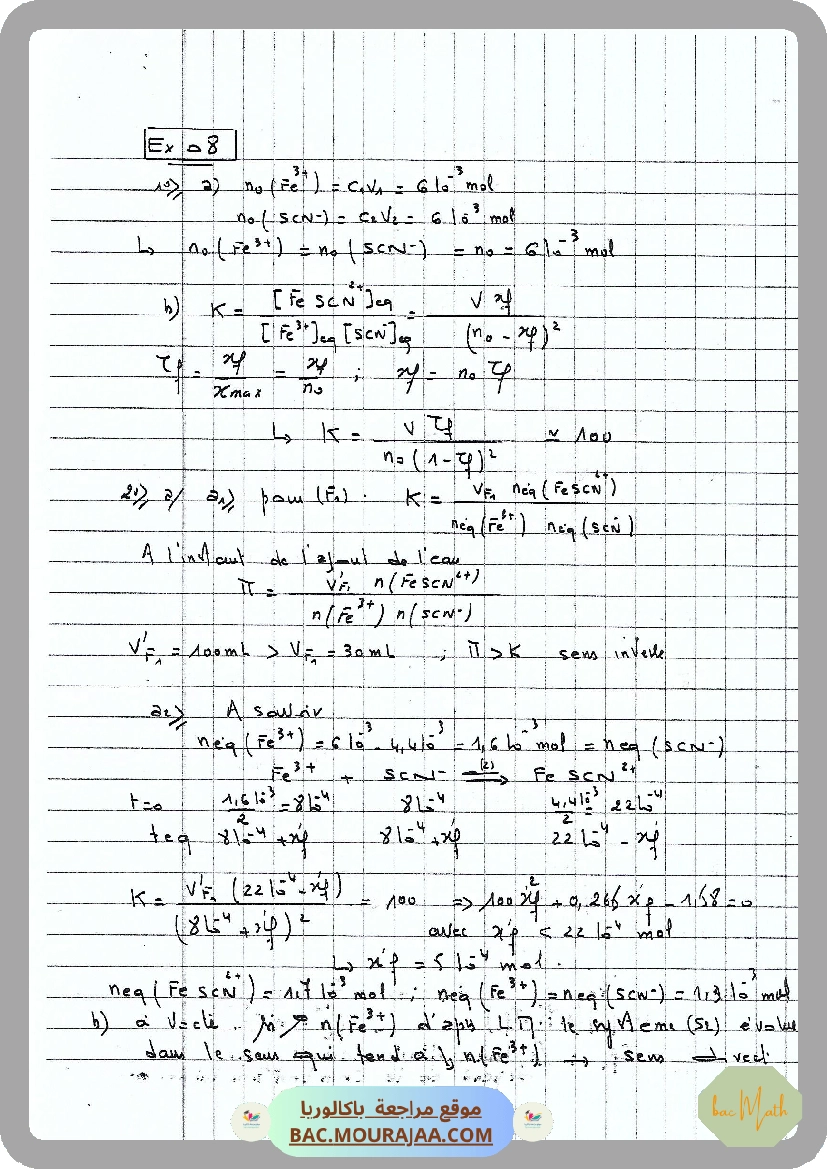 Ex 08
1°) a) n₀(Fe³⁺) = C₁V₁ = 6 10⁻³ mol
n₀(SCN⁻) = C₂V₂ = 6 10⁻³ mol
↳ n₀(Fe³⁺) = n₀(SCN⁻) = n₀ = 6 10⁻³ mol
b) K = [FeSCN²⁺]eq / [Fe³⁺]eq [SCN⁻]eq = V xf / (n₀ - xf)²
τf = xf / xmax = xf / n₀ ; xf = n₀ τf
↳ K = V τf / n₀ (1 - τf)² ≃ 100
2°) a/ a₁) pour (F₁) . K = V_F₁ néq(FeSCN²⁺) / néq(Fe³⁺) néq(SCN⁻)
A l'instant de l'ajout de l'eau
Π = V'_F₁ n(FeSCN²⁺) / n(Fe³⁺) n(SCN⁻)
V'_F₁ = 100mL > V_F₁ = 30mL ; Π > K sens inverse
a₂)
néq(Fe³⁺) = 6 10⁻³ - 4,4 10⁻³ = 1,6 10⁻³ mol = néq(SCN⁻)
Fe³⁺ + SCN⁻ ⇌ (2) FeSCN²⁺
t=0 1,6 10⁻³ / 2 = 8 10⁻⁴ 8 10⁻⁴ 4,4 10⁻³ / 2 = 22 10⁻⁴
teq 8 10⁻⁴ + x'f 8 10⁻⁴ + x'f 22 10⁻⁴ - x'f
K = V'_F₁ (22 10⁻⁴ - x'f) / (8 10⁻⁴ + x'f)² = 100 ⇒ 100 x'f² + 0,266 x'f - 1,58 = 0
avec x'f < 22 10⁻⁴ mol
↳ x'f = 5 10⁻⁴ mol.
néq(FeSCN²⁺) = 1,7 10⁻³ mol ; néq(Fe³⁺) = néq(SCN⁻) = 1,3 10⁻³ mol
b) à V=cte . si ↗ n(Fe³⁺) d'après L.M. le système (S₂) évolue
dans le sens qui tend à ↘ n(Fe³⁺) → sens direct
موقع مراجعة باكالوريا
BAC.MOURAJAA.COM
bac Math